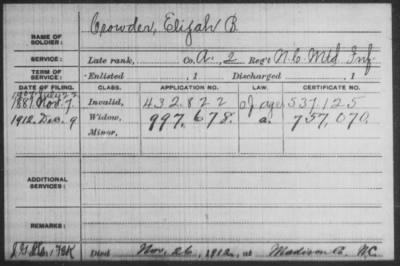 NAME OF SOLDIER: Crowder, Elijah B.
SERVICE: Late rank, Co. A, 2 Reg't N.C. Mtd. Inf.
TERM OF SERVICE: Enlisted , 1 Discharged , 1
DATE OF FILING. CLASS. APPLICATION NO. LAW. CERTIFICATE NO.
1887 Nov. 7. Invalid, 432.822 537.125
1912. Dec. 9 Widow, 997.678. a. 757.070.
Minor,
ADDITIONAL SERVICES:
REMARKS:
Died Nov. 26, 1912, at Madison Co. N.C.